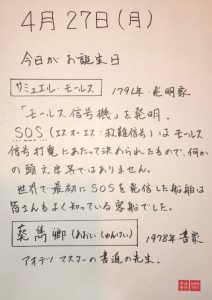 4月27日(月)
今日がお誕生日
サミュエル・モールス 1791年・発明家
「モールス信号機」を発明.
SOS(エスオーエス:救難信号)はモールス
信号打電にあたって決められたもので、何か
の頭文字等ではありません。
世界で最初にSOSを発信した船舶は
皆さんもよく知っている客船でした。
葵雋卿(あおい しゅんけい) 1978年 書家
アオデソ マスターの書道の先生.